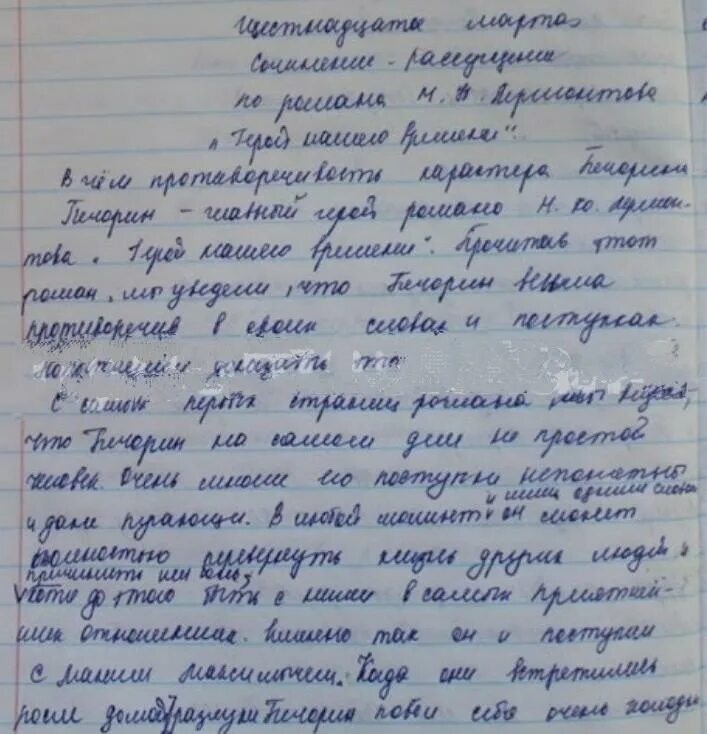 шестнадцатое марта
Сочинение - рассуждение
по романа М. Ю. Лермонтова
„Герой нашего времени".
В чём противоречивость характера Печорина
Печорин - главный герой романа М. Ю. Лермон-
това „Герой нашего времени". Прочитав этот
роман, мы увидели, что Печорин весьма
противоречив в своих словах и поступках.
доказать это
С самых первых страниц романа мы
что Печорин на самом деле не простой
человек. Очень многие его поступки непонятны
и даже пугающи. В любой момент и он сможет
полностью перевернуть жизнь других людей и
причинить им боль,
хотя до этого быть с ними в самых приятней-
ших отношениях. Именно так он и поступил
с Максим Максимычем. Когда они встретились
после разлуки Печорин повёл себя очень холодно